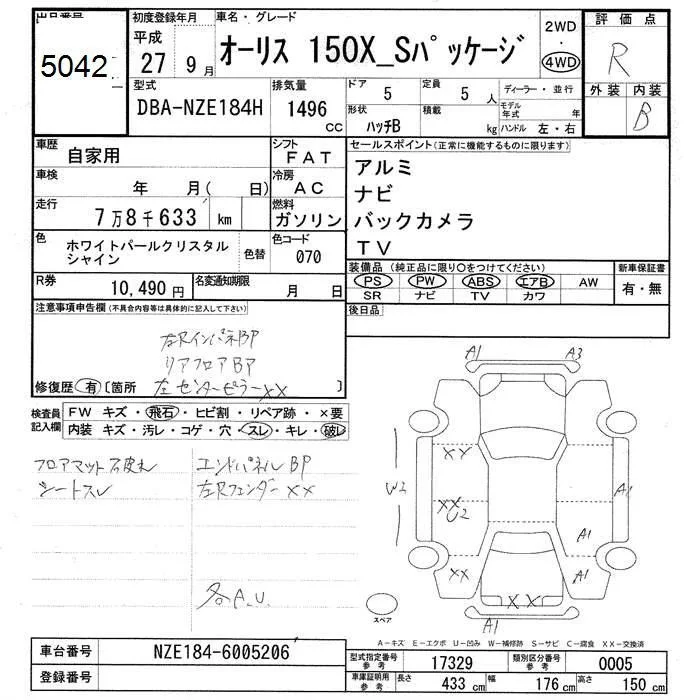 出品番号
5042
初度登録年月
平成
27 9月
車名・グレード
オーリス 150X_Sパッケージ
2WD
・
4WD
評価点
R
外装 内装
B
型式
DBA-NZE184H
排気量
1496
cc
ドア
5
定員
5 人
形状
ハッチB
積載
kg
ディーラー・並行
モデル年式 年
ハンドル 左・右
車歴
自家用
シフト
FAT
車検
年 月( 日)
冷房
AC
走行
7万8千633 km
燃料
ガソリン
色
ホワイトパールクリスタル
シャイン
色替
色コード
070
R券
10,490円
名変通知期限
月 日
セールスポイント(正常に機能するものに限ります)
アルミ
ナビ
バックカメラ
TV
装備品(純正品に限り○をつけてください)
PS PW ABS エアB AW
SR ナビ TV カワ
新車保証書
有・無
後日品
注意事項申告欄(不具合内容等は具体的に記入して下さい)
左Rインパネ BP
リアフロア BP
修復歴 有 [箇所 左センターピラーXX ]
検査員
記入欄
FW キズ・飛石・ヒビ割・リペア跡・×要
内装 キズ・汚レ・コゲ・穴・スレ・キレ・破レ
フロアマット破れ
シートスレ
エンドパネル BP
左Rフェンダー XX
各A.U.
A1 A3
XY
W2
XX
U2
A1
A1
XX
A1
XX
A1
スペア
A-キズ E-エクボ U-凹み W-補修跡 S-サビ C-腐食 XX-交換済
車台番号
NZE184-6005206
登録番号
型式指定番号
参考
17329
類別区分番号
参考
0005
車庫証明用
参考
長さ 433 cm 幅 176 cm 高さ 150 cm